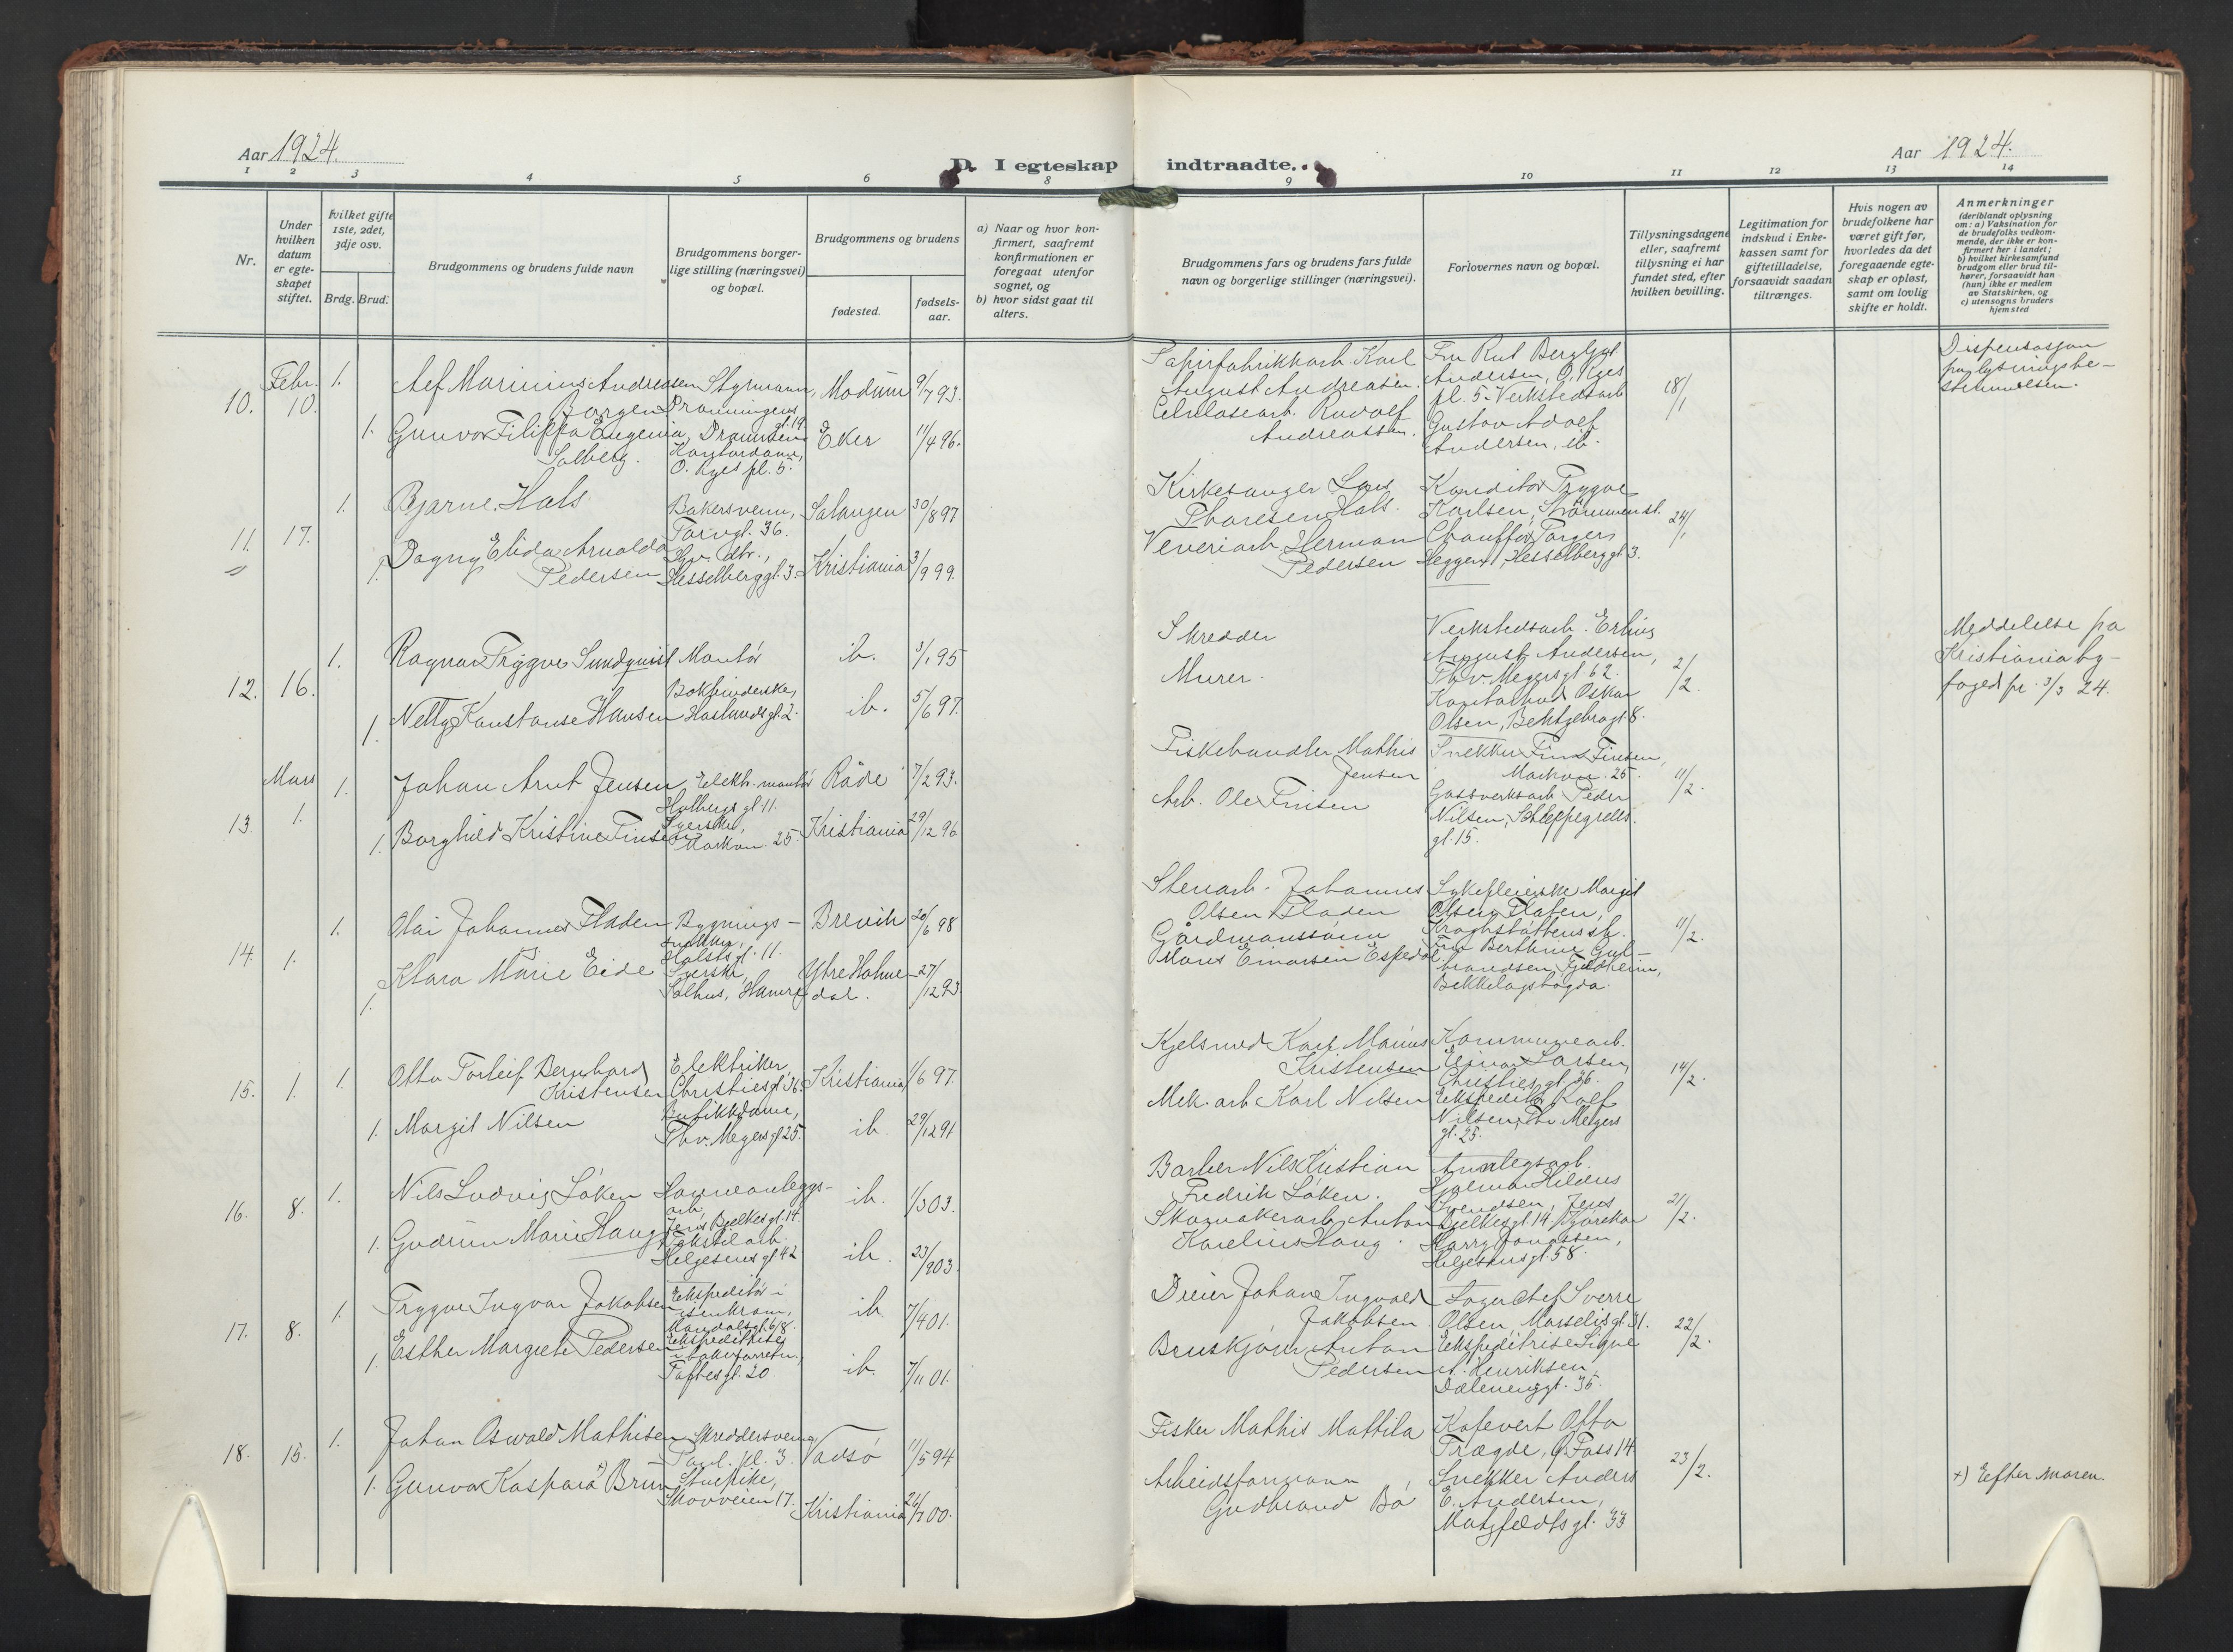 Aar 1924.
D. I egteskap indtraadte.
Aar 1924.
1 2 3 4 5 6 8 9 10 11 12 13 14
Nr.
Under hvilken datum er egteskapet stiftet.
Hvilket gifte 1ste, 2det, 3dje osv.
Brdg. Brud.
Brudgommens og brudens fulde navn
Brudgommens borgerlige stilling (næringsvei) og bopæl.
Brudgommens og brudens
fødested.
fødselsaar.
a) Naar og hvor konfirmert, saafremt konfirmationen er foregaat utenfor sognet, og
b) hvor sidst gaat til alters.
Brudgommens fars og brudens fars fulde navn og borgerlige stillinger (næringsvei).
Forlovernes navn og bopæl.
Tillysningsdagene eller, saafremt tillysning ei har fundet sted, efter hvilken bevilling.
Legitimation for indskud i Enkekassen samt for giftetilladelse, forsaavidt saadan tiltrænges.
Hvis nogen av brudefolkene har været gift før, hvorledes da det foregaaende egteskap er opløst, samt om lovlig skifte er holdt.
Anmerkninger
(deriblandt oplysning om: a) Vaksination for de brudefolks vedkommende, der ikke er konfirmert her i landet;
b) hvilket kirkesamfund brudgom eller brud tilhører, forsaavidt han (hun) ikke er medlem av Statskirken, og
c) utensogns bruders hjemsted
10. Febr. 10. 1.
Marinius Andreasen
Borgen
Styrmann,
Dronningens gt. 19.
Drammen
Modum 9/7 93.
1. Gunvor Filippa Eugenia
Solberg.
Kontordame,
O. Ryes pl. 5.
Eker 11/4 96.
Papirfabrikkarb. Karl
August Andreasen.
Celulosearb. Rudolf
Andreassen.
Fru Rut Bergljot
Andersen, O. Ryes
pl. 5. Verkstedsarb
Gustav Adolf
Andersen, ib.
18/1
Dispensasjon
fra lysningsbe-
stemmelsen.
11. 17. 1.
Bjarne Hals
Bakersvenn,
Torvgt. 36.
Salangen 30/8 97
1. Dagny Elida Arnolda
Pedersen
Hesselberggt. 3.
Kristiania 3/9 99.
Kirkesanger Lars
Hals.
Veveriarb. Herman
Pedersen
Konditor Trygve
Karlsen, Strömmen st.
Chauffør Torgeir
Heggen, Hesselberggt 3.
24/1
12. 16. 1.
Ragnar Trygve Sundquist
Montör
ib. 3/1 95
1. Netty Konstanse Hansen
Bokbinderske,
Haslunds gt. 2.
ib. 5/6 97.
Skredder
Murer.
Verkstedsarb. Erling
August Andersen,
Th. v. Meyersgt 62.
Oskar
Olsen, 8.
2/2.
Meddelelse fra
Kristiania by-
foged pr. 3/3 24.
13. Mars 1. 1.
Johan Arnt Jensen
Elektr. montör
Holbergs gt 11.
Råde 7/2 93.
1. Borghild Kristine Finsen
Syerske,
Markvn. 25.
Kristiania 29/12 96
Fiskehandler Mathis
Jensen
Arb. Ole Finsen
Snekker Finn Finsen,
Markvn. 25.
Gassverksarb. Peder
Nilsen, Schleppegrells.
gt. 15.
11/2.
14. 1. 1.
Olai Johannes Fladen
Bygnings-
snekker,
Holsts gt. 11.
Brevik 20/6 98
1. Klara Marie Eide
Syerske,
Salhus, Hamre
Ytre Holme-
dal. 27/12 93
Stenarb. Johannes
Olsen Fladen
Gårdmannssönn
Mons Einarsen Espedal.
Sykepleierske Margit
Olsen Flaten,
Krogstöttens sh.
Fru Berthine Gul-
brandsen, Fjeldheim,
Bekkelagshögda.
11/2.
15. 1. 1.
Otto Torleif Bernhard
Kristensen
Elektriker,
Christiesgt. 36.
Kristiania 1/6 97.
1. Margit Nilsen
Butikkdame,
Th. v. Meyersgt 25.
ib. 29/12 91
Kjelsmed Karl Marius
Kristensen
Mek. arb Karl Nilsen
Kommunearb.
Einar Larsen,
Christies gt. 36.
Ekspeditör Rolf
Nilsen, Th. v Meyers
gt. 25.
14/2.
16. 8. 1.
Nils Ludvig Löken
Havneanleggs-
arb,
Jens Bjelkesgt. 14.
ib. 1/3 03.
1. Gudrun Marie Haug
Tekstilarb.
Helgesens gt 42
ib. 23/9 03.
Barber Nils Kristian
Fredrik Löken.
Skomakerarb. Anton
Karelius Haug.
Anlegsarb.
Hjalmar Hilders
Svendsen, Jens
Bjelkesgt. 14.
Harry Jonassen,
Helgesensgt 58.
21/2.
17. 8. 1.
Trygve Ingvar Jakobsen
Ekspeditör i
isenkram,
Mandalsgt. 6/8.
ib 7/4 01.
1. Esther Margrete Pedersen
Ekspeditrise
i bakerforretn.,
Toftesgt. 20
ib. 7/11 01.
Dreier Johan Ingvald
Jakobsen.
Bruskjörer Anton
Pedersen
Lagerchef Sverre
Olsen, Marselisgt. 31.
Ekspeditrise Signe
A. Henriksen,
Dælenenggt. 36.
22/2.
18. 15. 1.
Johan Oswald Mathisen
Skreddersvenn,
pl. 3.
Vadsö 11/5 94
1. Gunvor Kaspara +) Brun
Stuepike,
Skovveien 17.
Kristiania 26/7 00.
Fisker Mathis Mattila
Arbeidsformann
Gudbrand Bö
Kafevert Otto
Trægde, Foss 14
Snekker Anders
E. Andersen,
Motzfeldts gt. 33
23/2.
+) Efter moren.